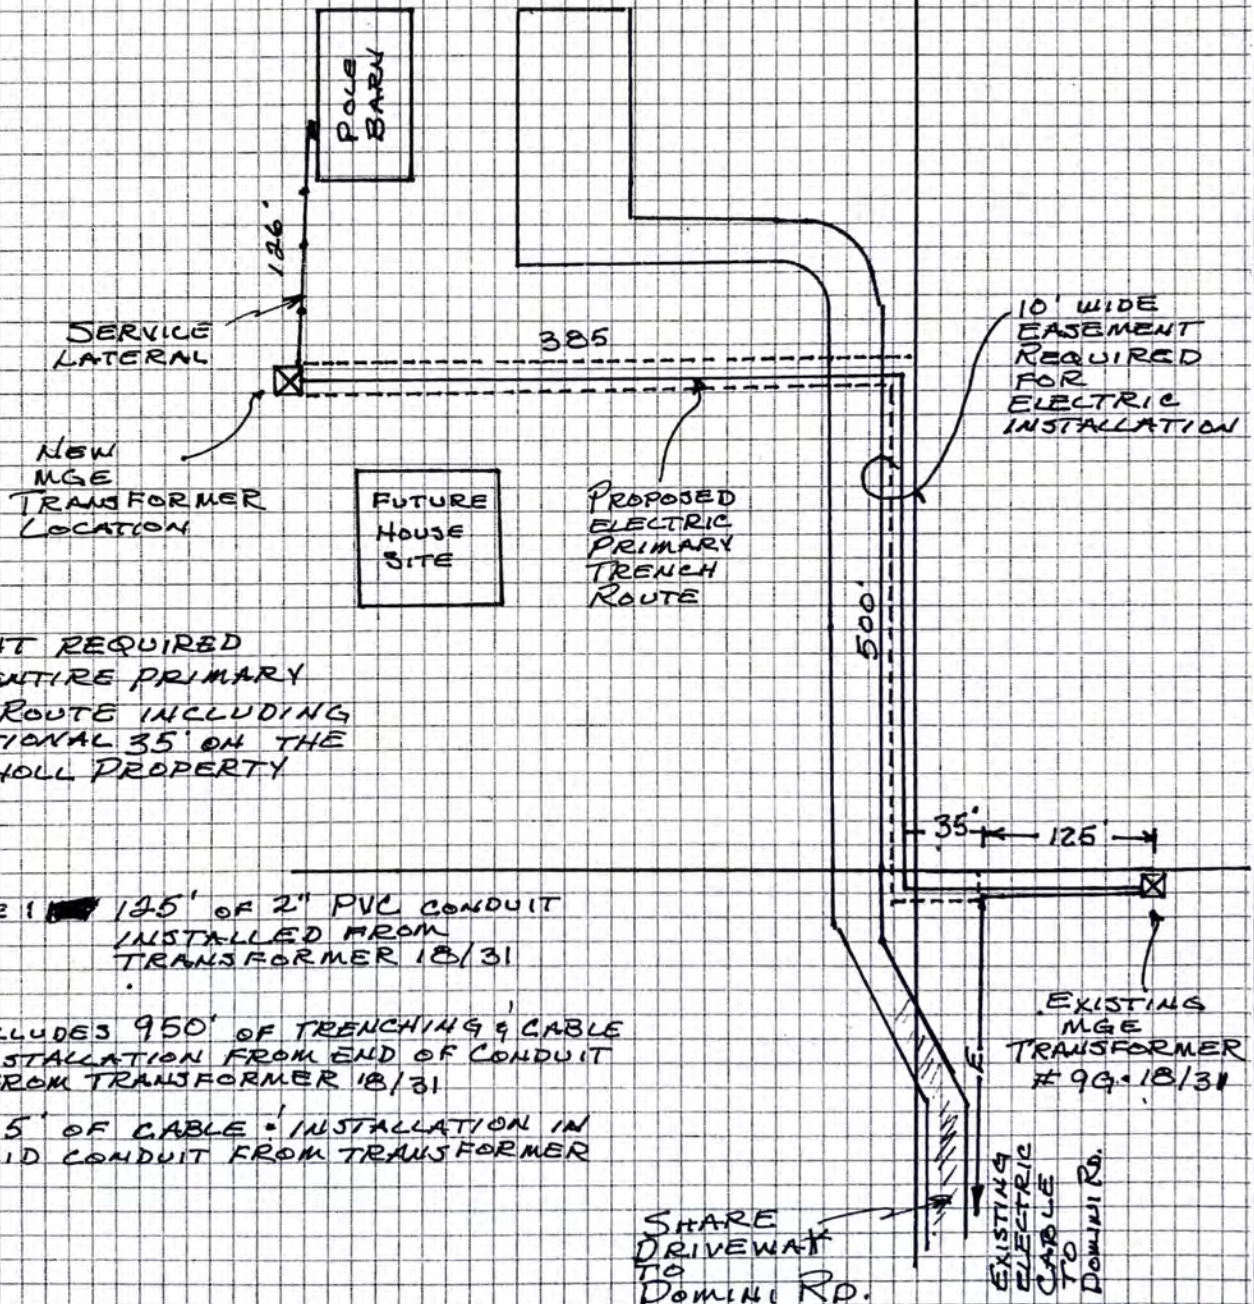 POLE
BARN
126'
SERVICE
LATERAL
385
10' WIDE
EASEMENT
REQUIRED
FOR
ELECTRIC
INSTALLATION
NEW
MGE
TRANSFORMER
LOCATION
FUTURE
HOUSE
SITE
PROPOSED
ELECTRIC
PRIMARY
TRENCH
ROUTE
500'
REQUIRED
ENTIRE PRIMARY
ROUTE INCLUDING
35' ON THE
PROPERTY
35'
125'
125' OF 2" PVC CONDUIT
INSTALLED FROM
TRANSFORMER 18/31
950' OF TRENCHING & CABLE
INSTALLATION FROM END OF CONDUIT
FROM TRANSFORMER 18/31
OF CABLE & INSTALLATION IN
CONDUIT FROM TRANSFORMER
EXISTING
MGE
TRANSFORMER
# 9G-18/31
E
EXISTING
ELECTRIC
CABLE
TO
DOMINI RD.
SHARE
DRIVEWAY
TO
DOMINI RD.